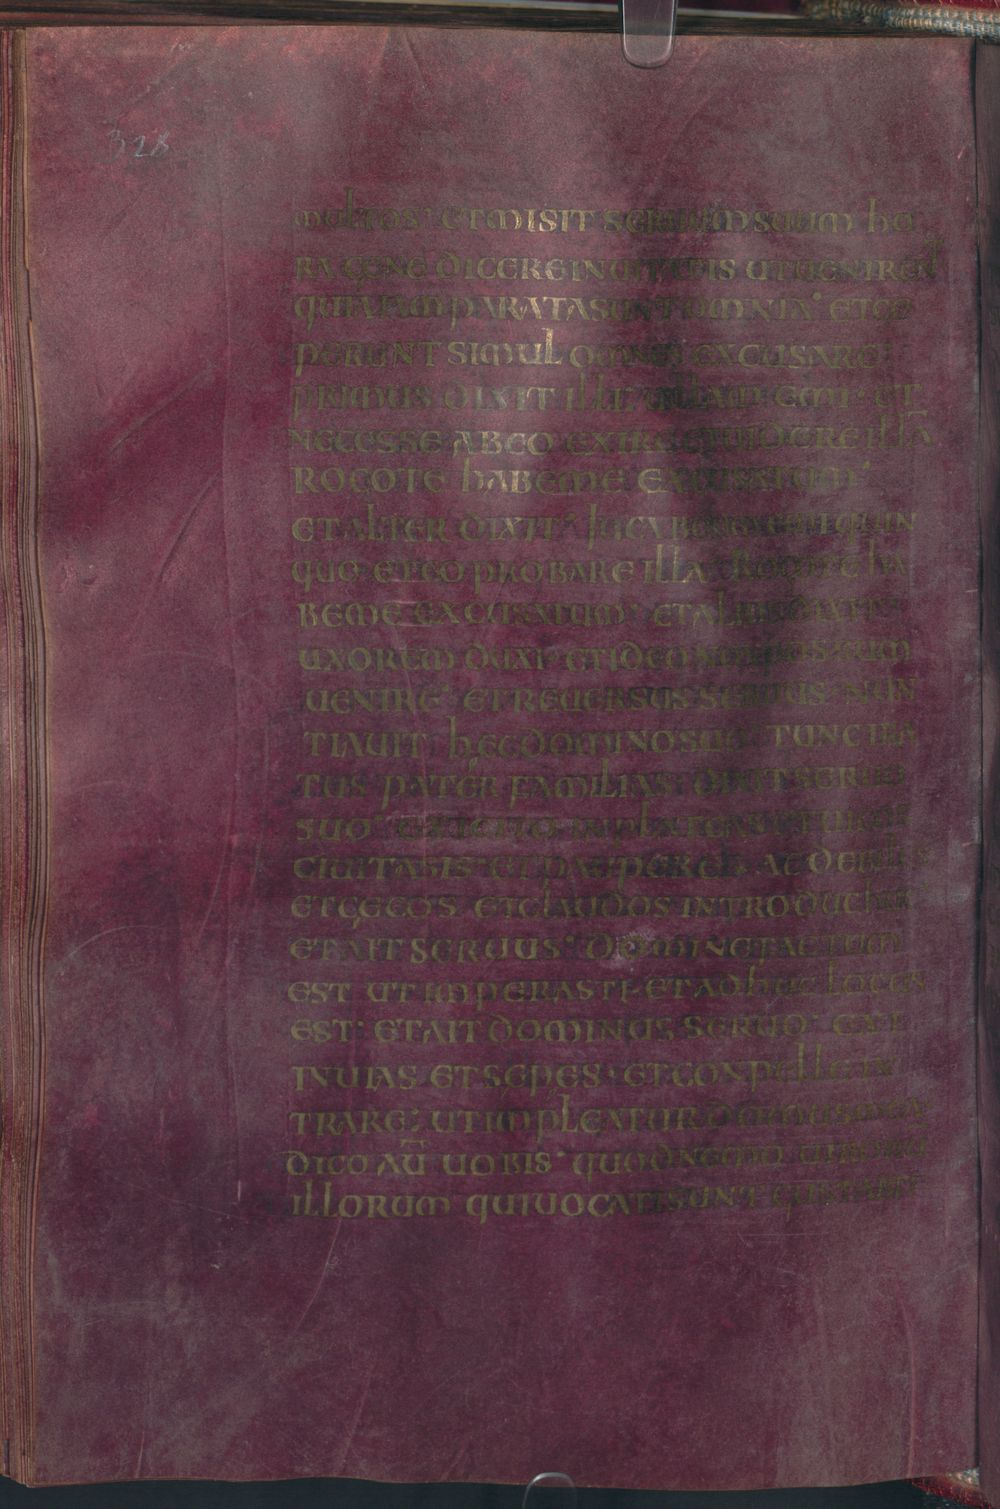 328
multos· et misit seruum suum ho
ra cene dicere inuitatis ut uenirent
quia iam parata sunt omnia· et ce
perunt simul omnes excusare·
primus dixit illi uillam emi· et
necesse abeo exire et uidere illā
rogo te habe me excusatum·
et alter dixit· iuga boum emi quin
que et eo probare illa· rogo te ha
be me excusatum· et alius dixit·
uxorem duxi· et ideo non possum
uenire· et reuersus seruus nun
tiauit hęc domino suo· tunc ira
tus pater familias· dixit seruo
suo· exi cito in plateas et uicos
ciuitatis· et pauperes ac debiles
et cęcos et claudos introduc huc
et ait seruus· domine factum
est ut imperasti· et adhuc locus
est· et ait dominus seruo· exi
in uias et sepes· et conpelle in
trare; ut impleatur domus mea
dico aūt uobis· quod nemo uirorū
illorum qui uocati sunt gustabit